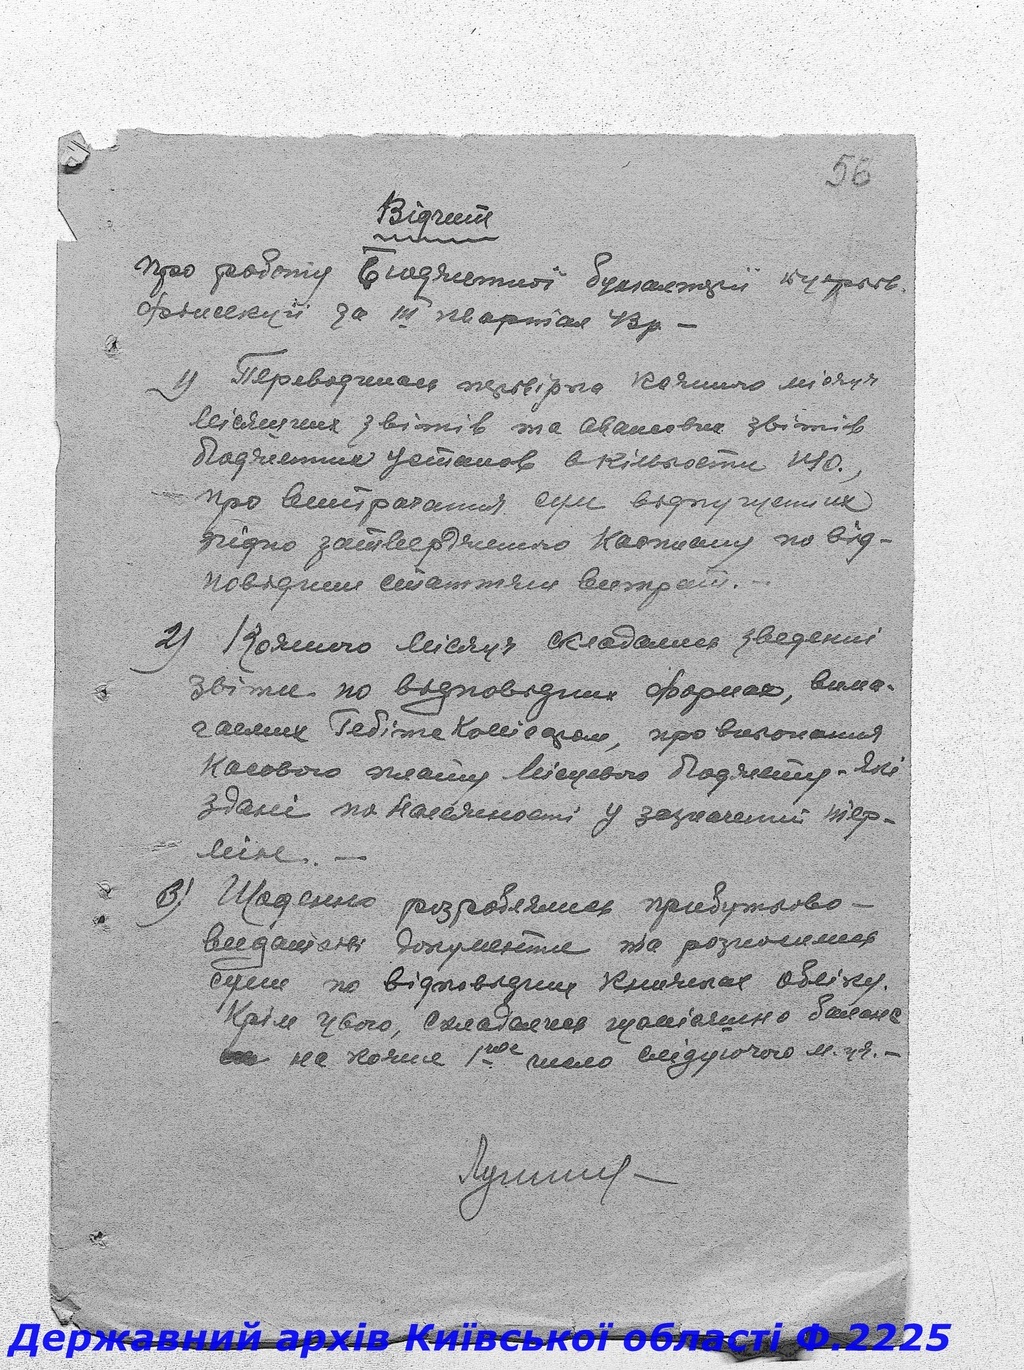 56
Відчит
про роботу Бюджетної бухгалтерії
фінсекції за III квартал 43р –
1) Переводилась перевірка кожного місяця
місячних звітів та авансових звітів
бюджетних установ в кількости
про витрачання сум відпущених
згідно затвердженого Касплану по від-
повідним статтям витрат. –
2) Кожного місяця складались зведенні
звіти по відповідних формах, вима-
гаємих Гебітскомісаром, про виконання
Касового плану Місцевого бюджету – які
здані по належності у зазначений тер-
мін. –
3) Щоденно розроблялись прибутково –
видаткові документи та розносились
суми по відповідних книжках обліку.
Крім цього, складався щомісячно баланс
на кожне 1-ше число слідуючого м-ця. –
Державний архів Київської області Ф.2225